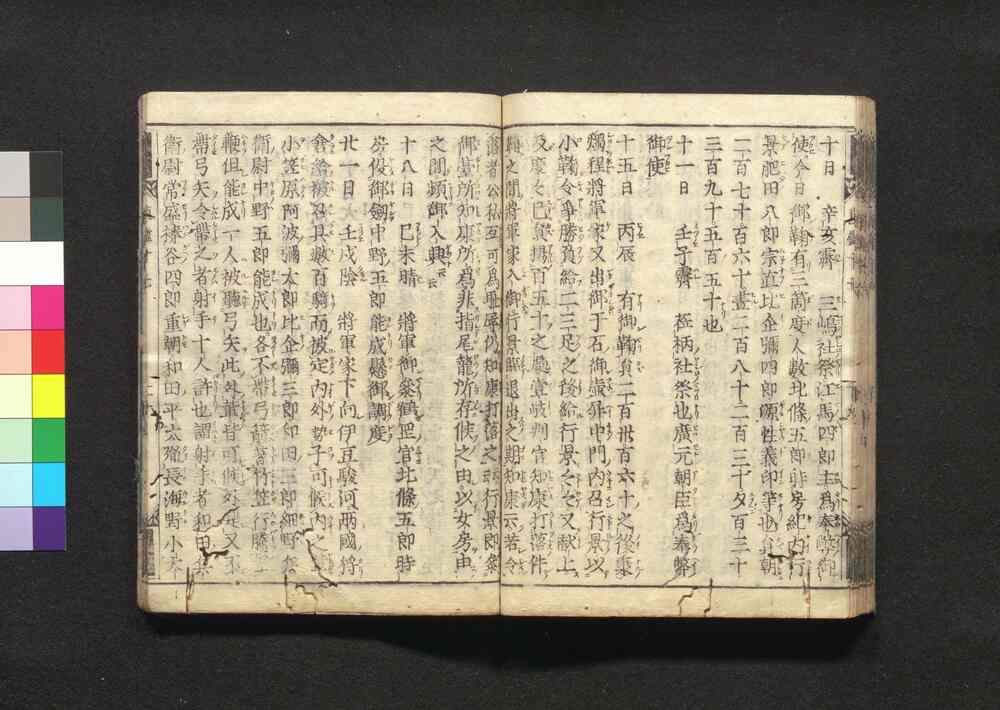 十日　辛亥霽　三嶋社祭江馬四郎主爲奉幣御
使今日御鞠有三箇度人數北條五郎時房紀内行
景肥田八郎宗直比企彌四郎源性義印等也員朝
二百七十百六十晝二百八十二百三十夕百三十
三百九十五百五十也
十一日　壬子霽　椏柄社祭也廣元朝臣爲奉幣
御使
十五日　丙辰　有御鞠負二百卅百六十之後乗
燭程將軍家又出御于石御壷昇中門内召行景以
小鞠令爭勝負給二三足之後給行景之々又獻上
及度々已員揚百五十之處壹岐判官知康打落件
鞠之間將軍家入御行景照退出之期知康云若令
落者公私互可爲耻辱仍知康打落之云行景即參
御臺所知康所爲非指尾籠所存候之由以女房申
之間頻御入興云
十八日　己未晴　將軍御參鶴罡宮北條五郎時
房役御劔中野五郎能成懸御調度
廿一日　壬戌陰　將軍家下向伊豆駿河兩國將
小笠原阿波彌太郎比企彌三郎和田三郎細野
衛尉中野五郎能成也各不帶弓箭著竹笠行騰
鞭但能成一人被聽弓矢此外
帶弓矢令帶之者射手十人許也謂射手者和田
衛尉常盛榛谷四郎重朝和田平太胤長海野小太